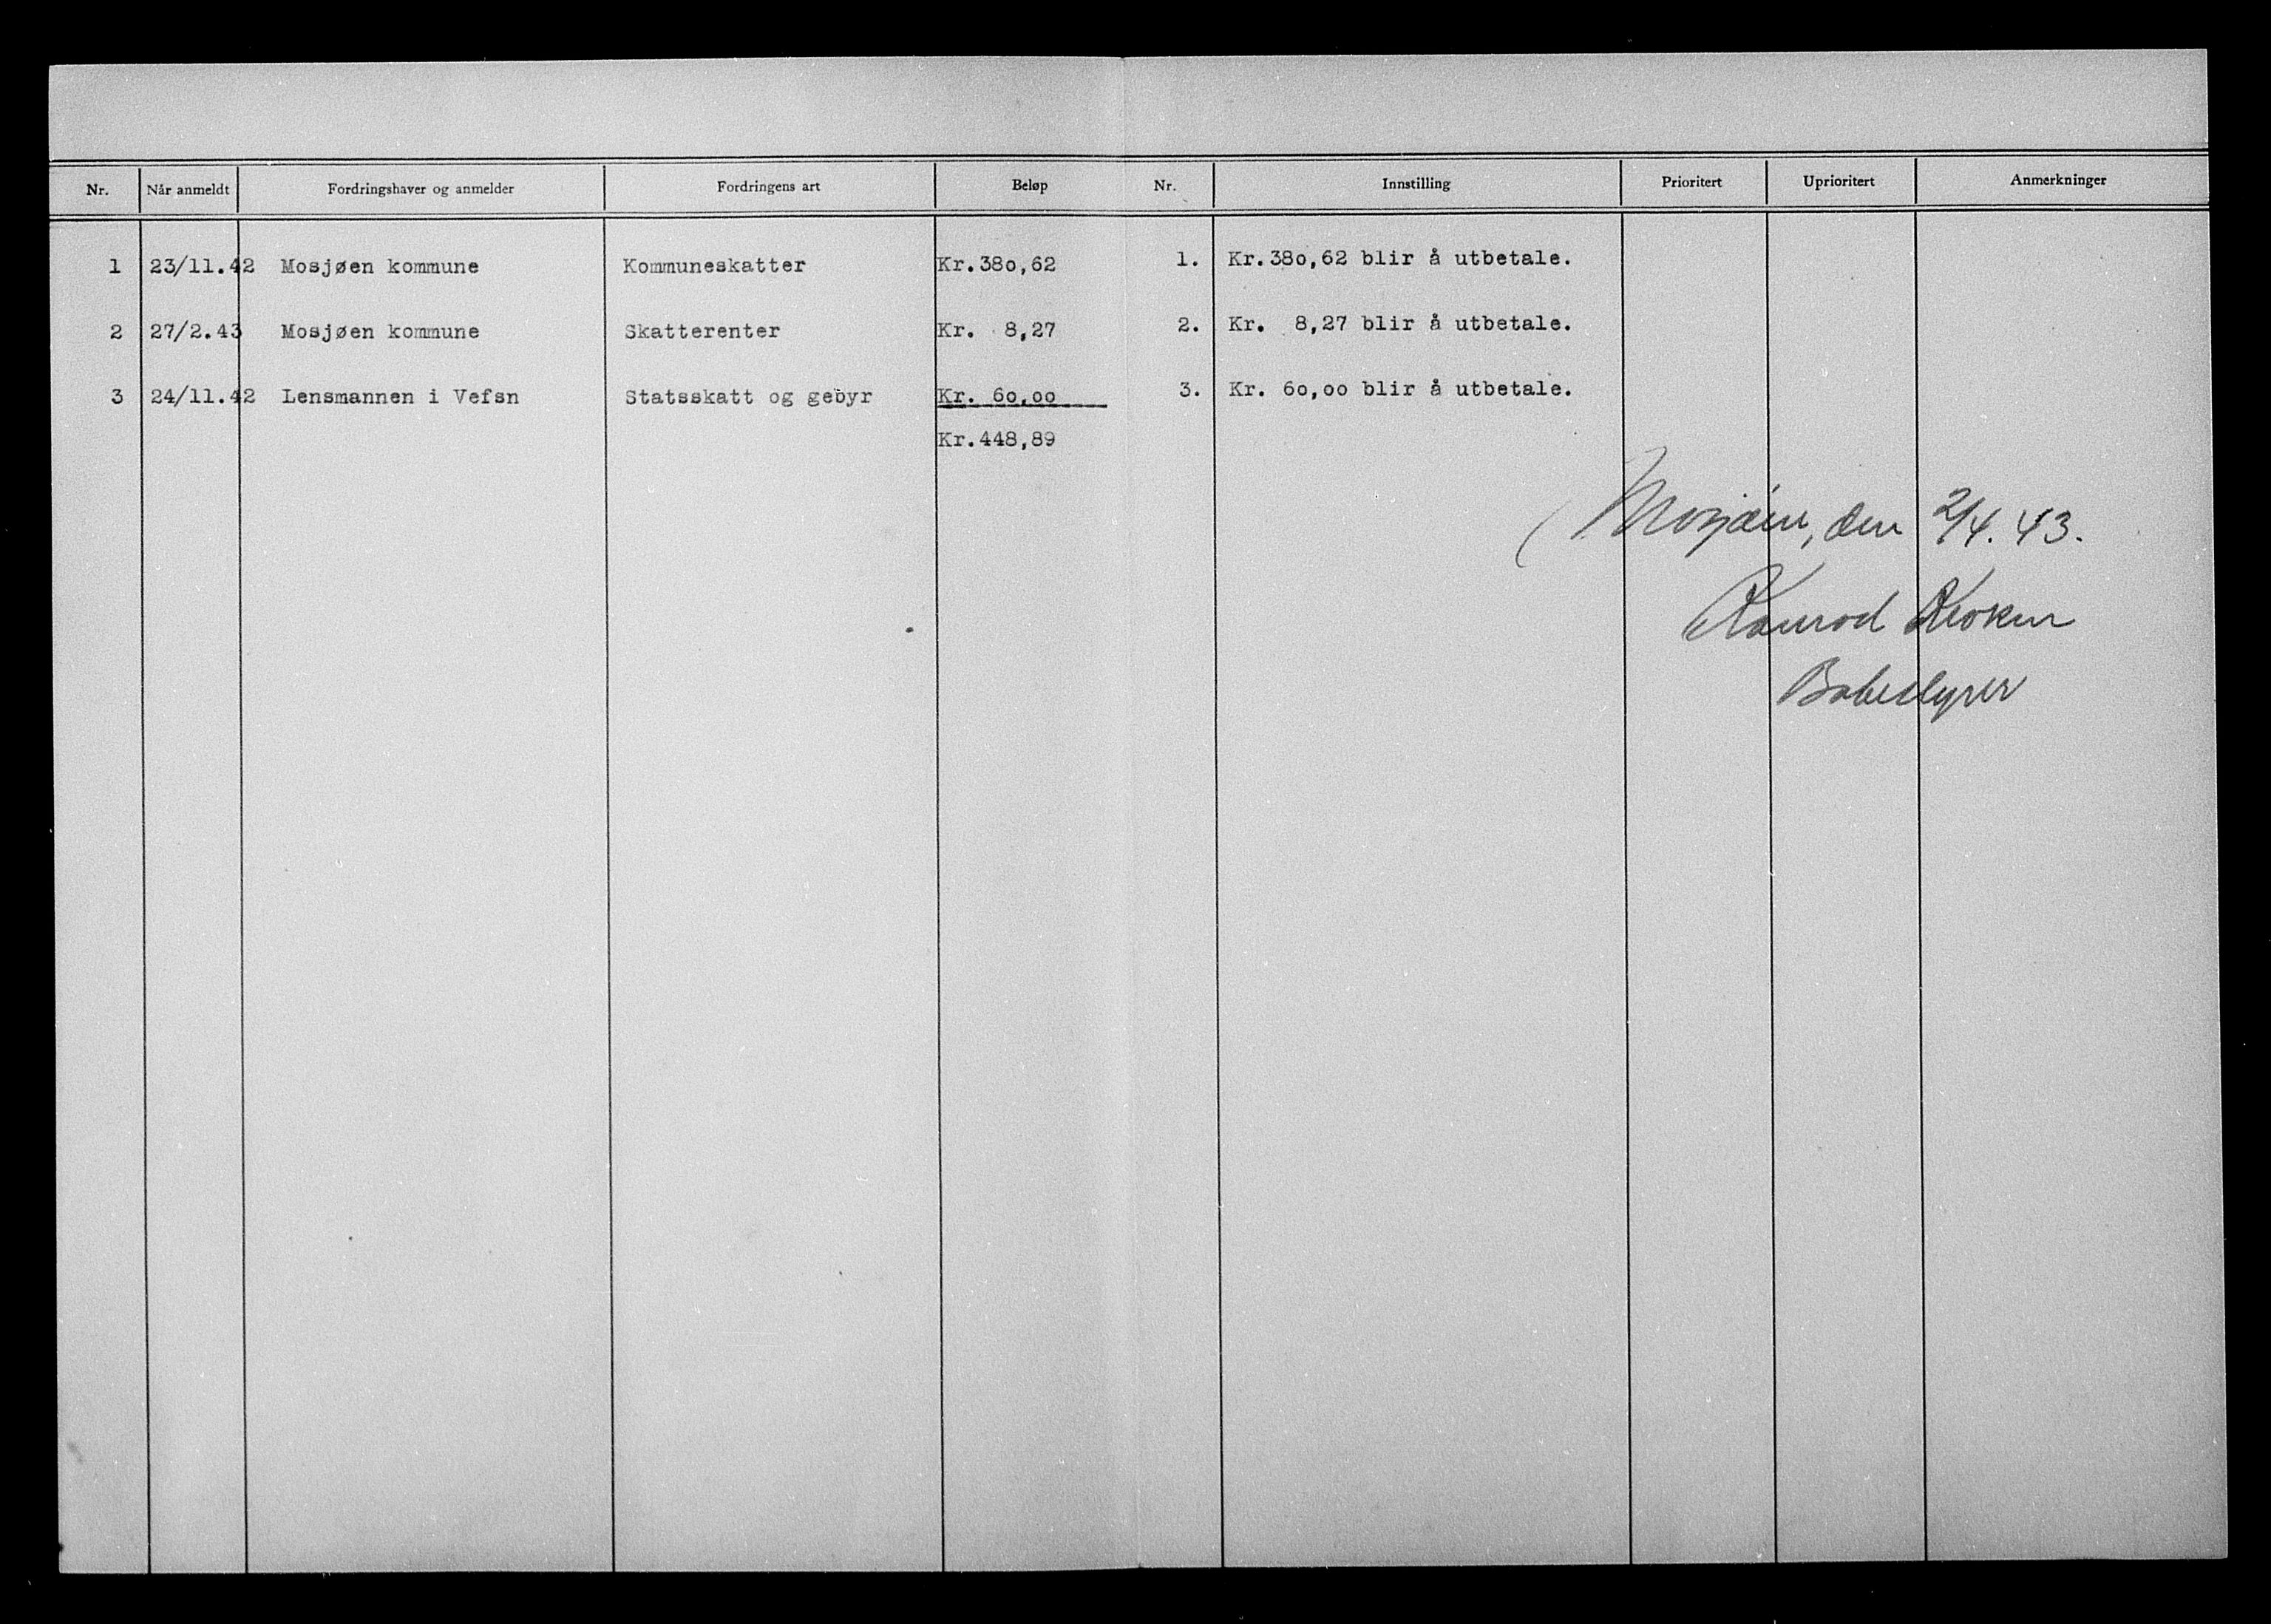 Nr. Når anmeldt Fordringshaver og anmelder Fordringens art Beløp Nr. Innstilling Prioritert Uprioritert Anmerkninger
1 23/11.42 Mosjøen kommune Kommuneskatter Kr.380,62 1. Kr.380,62 blir å utbetale.
2 27/2.43 Mosjøen kommune Skatterenter Kr. 8,27 2. Kr. 8,27 blir å utbetale.
3 24/11.42 Lensmannen i Vefsn Statsskatt og gebyr Kr. 60,00 3. Kr. 60,00 blir å utbetale.
Kr.448,89
Mosjøen, den 2/4. 43.
Konrad
Bobestyrer